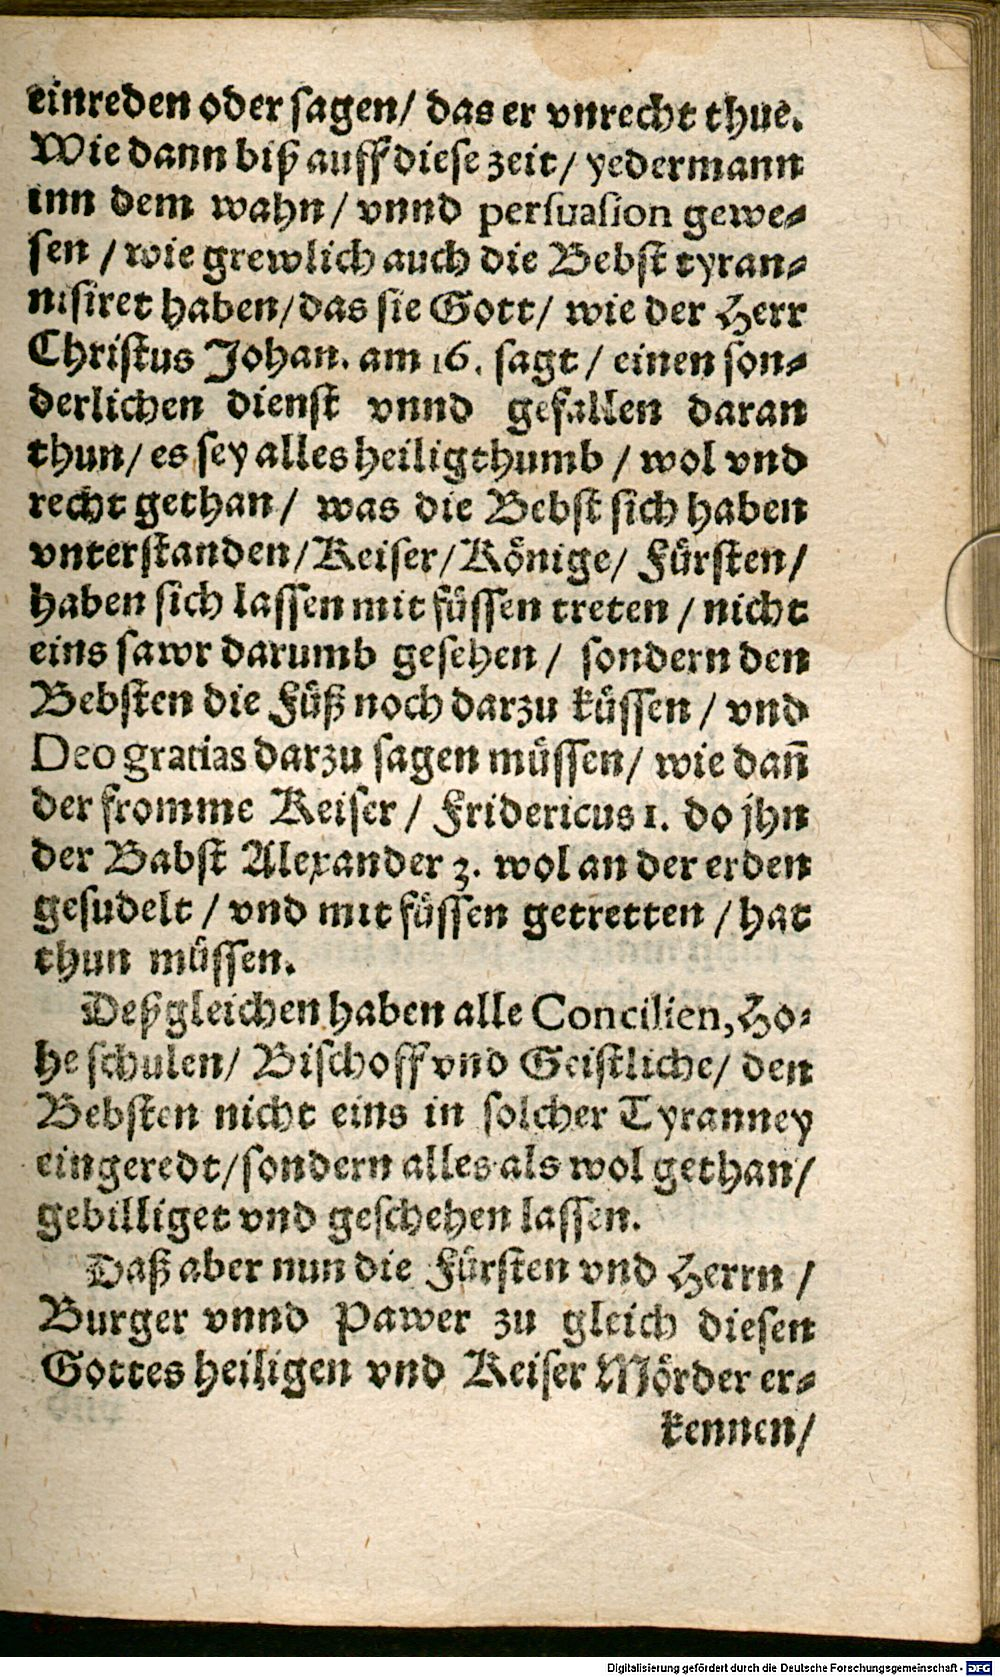 einreden oder sagen/ das er vnrecht thue.
Wie dann biß auff diese zeit/ yedermann
inn dem wahn/ vnnd persuasion gewe-
sen / wie grewlich auch die Bebst tyran-
nisiret haben/ das sie Gott/ wie der Herr
Christus Johan. am 16. sagt / einen son-
derlichen dienst vnnd gefallen daran
thun/ es sey alles heiligthumb / wol vnd
recht gethan/ was die Bebst sich haben
vnterstanden/ Keiser/ Könige/ Fürsten/
haben sich lassen mit füssen treten / nicht
eins sawr darumb gesehen/ sondern den
Bebsten die Füß noch darzu küssen / vnd
Deo gratias darzu sagen müssen/ wie dañ
der fromme Keiser / Fridericus 1. do jhn
der Babst Alexander 3. wol an der erden
gesudelt / vnd mit füssen getretten / hat
thun müssen.
Deßgleichen haben alle Concilien, Ho-
he schulen/ Bischoff vnd Geistliche/ den
Bebsten nicht eins in solcher Tyranney
eingeredt/ sondern alles als wol gethan/
gebilliget vnd geschehen lassen.
Daß aber nun die Fürsten vnd Herrn /
Burger vnnd Pawer zu gleich diesen
Gottes heiligen vnd Keiser Mörder er-
kennen/
Digitalisierung gefördert durch die Deutsche Forschungsgemeinschaft - DFG